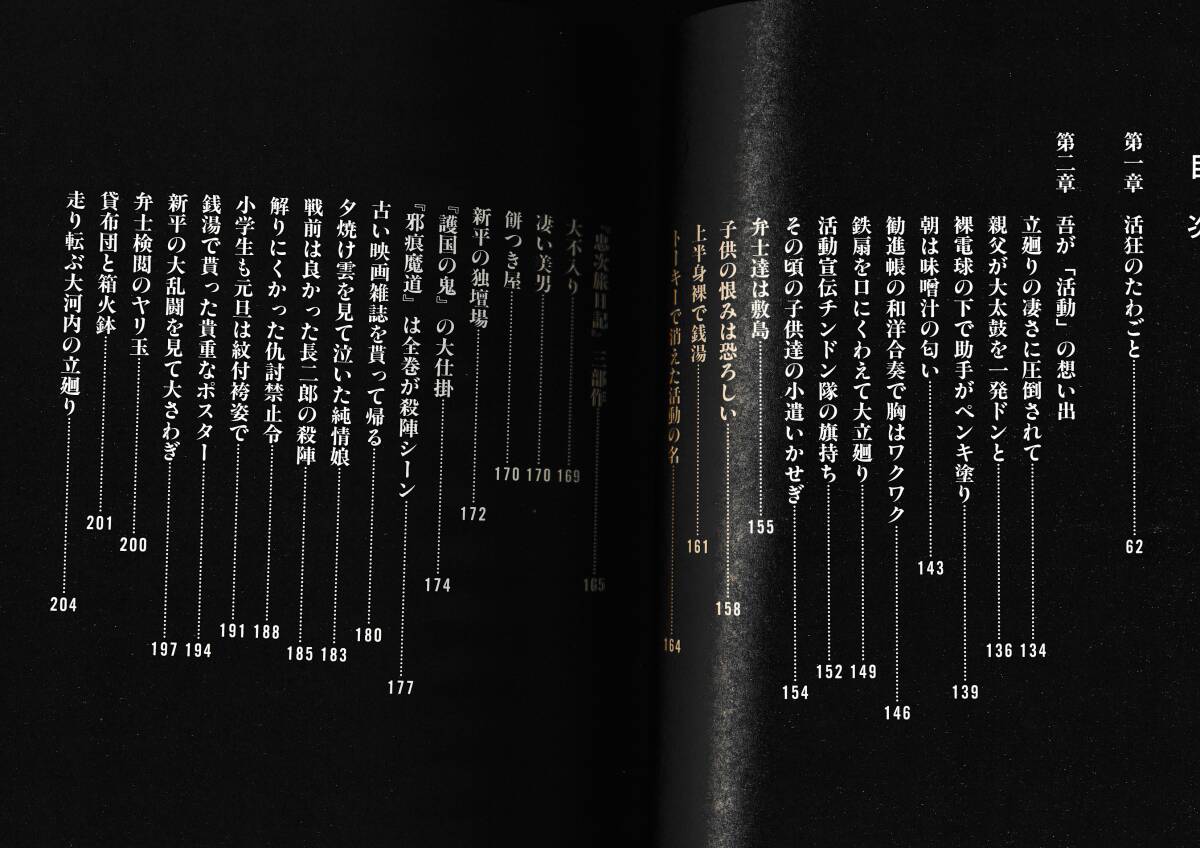 目次
第一章 活狂のたわごと 62
第二章 吾が「活動」の想い出
立廻りの凄さに圧倒されて 134
親父が大太鼓を一発ドンと 136
裸電球の下で助手がペンキ塗り 139
朝は味噌汁の匂い 143
勧進帳の和洋合奏で胸はワクワク 146
鉄扇を口にくわえて大立廻り 149
活動宣伝チンドン隊の旗持ち 152
その頃の子供達の小遣いかせぎ 154
弁士達は敷島 155
子供の恨みは恐ろしい 158
上半身裸で銭湯 161
トーキーで消えた活動の名 164
『忠次旅日記』三部作 165
大不入り 169
凄い美男 170
餅つき屋 170
新平の独壇場 172
『護国の鬼』の大仕掛 174
『邪痕魔道』は全巻が殺陣シーン 177
古い映画雑誌を貰って帰る 180
夕焼け雲を見て泣いた純情娘 183
戦前は良かった長二郎の殺陣 185
解りにくかった仇討禁止令 188
小学生も元旦は紋付袴姿で 191
銭湯で貰った貴重なポスター 194
新平の大乱闘を見て大さわぎ 197
弁士検閲のヤリ玉 200
貸布団と箱火鉢 201
走り転ぶ大河内の立廻り 204